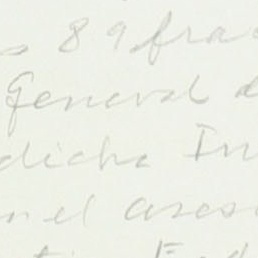 s 89 fra
General d
dicha In
n el aseso